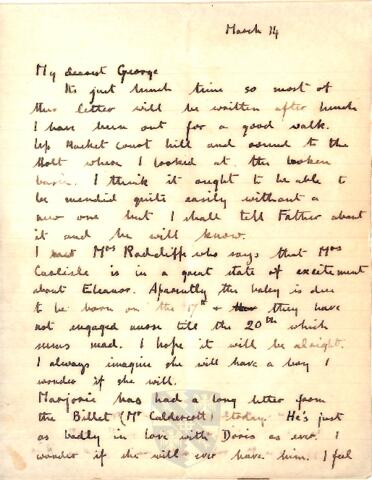 March 14
My dearest George
Its just lunch time so most of
this letter will be written after lunch
I have been out for a good walk.
Up Hacket court hill and around to the
Holt where I looked at the broken
basin. I think it ought to be able to
be mendid quite easily without a
new one but I shall tell Father about
it and he will know.
I met Mrs Radcliffe who says that Mrs
Carlisle is in a great state of excitement
about Eleanor. Aparently the baby is due
to be born on the 17th & they have
not engaged nurse till the 20th which
seems mad. I hope it will be alright.
I always imagine she will have a boy I
wonder if she will.
Marjorie has had a long letter from
the Billet (Mr Caldercott) today. He's just
as badly in love with Doris as ever. I
wonder if she will ever have him. I feel